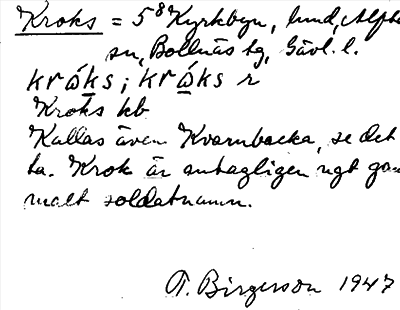 Kroks = 5⁸ Kyrkbyn, hmd, Alfta
sn, Bollnäs tg, Gävl. l.
krǻks ; krǻks r
Kroks hb
Kallas även Kvarnbacka, se det
ta. Krok är antagligen ngt gam
malt soldatnamn.
T. Birgerson 1947